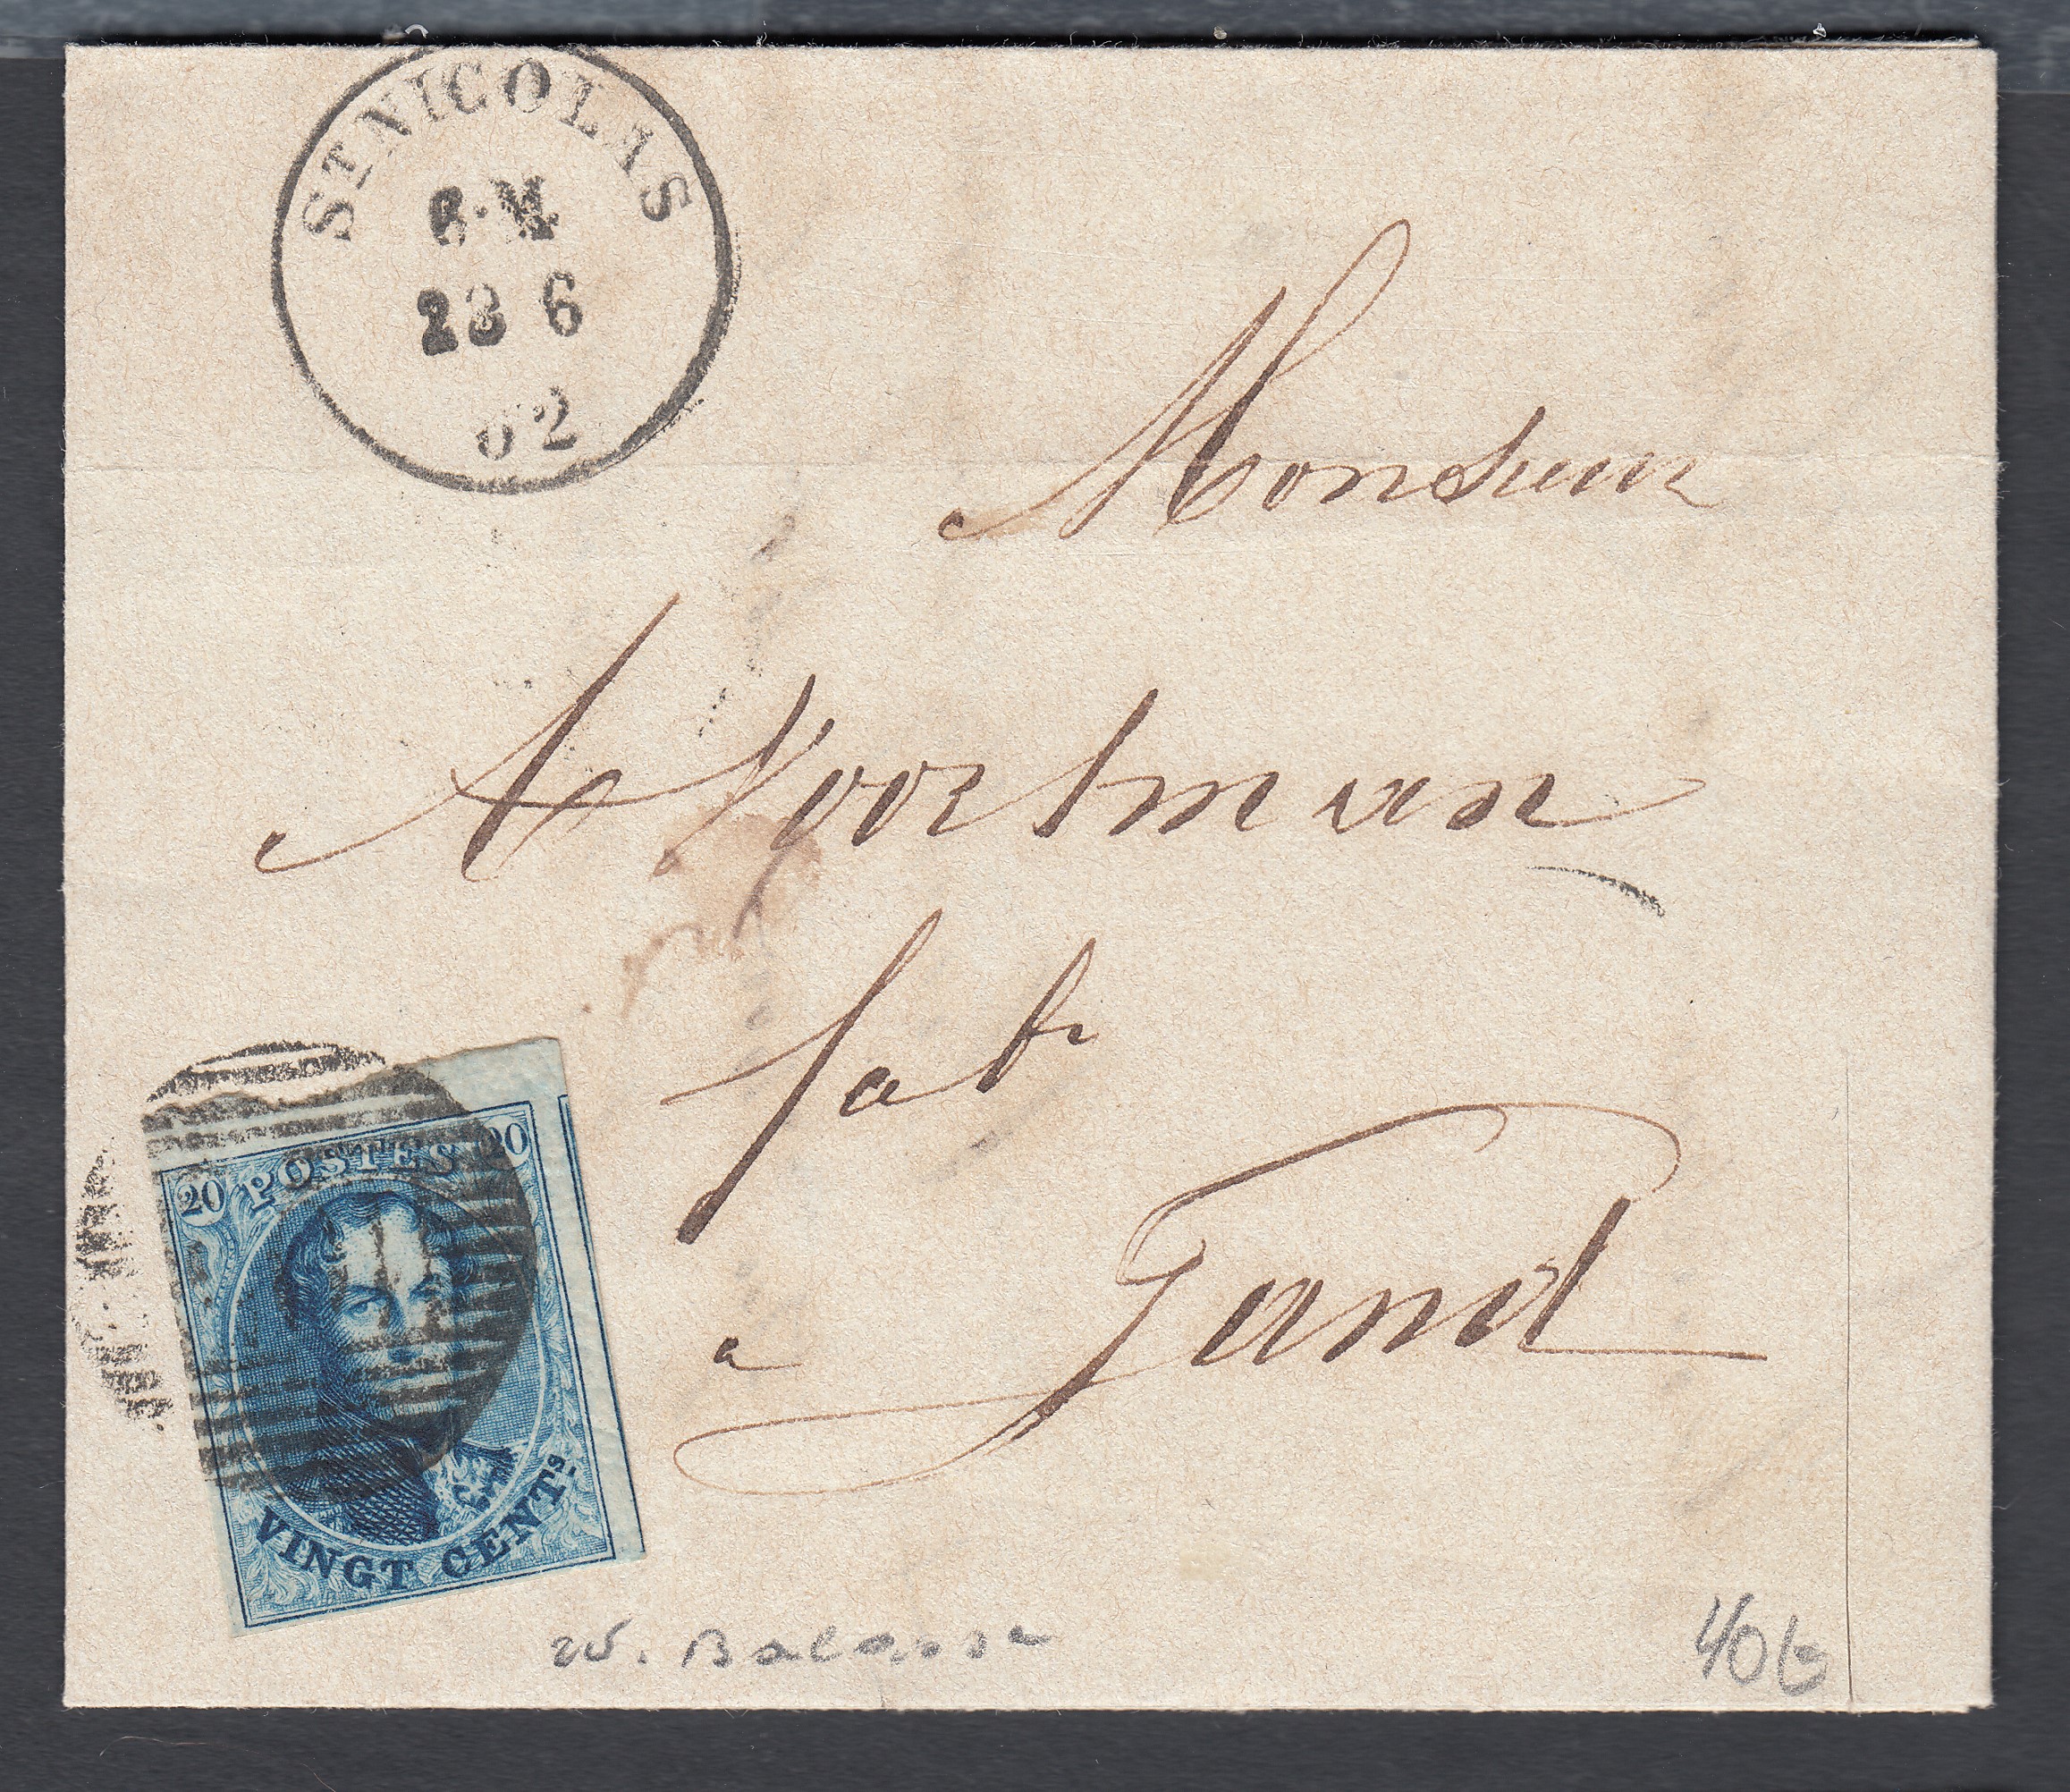 ST NICOLAS
23 6
62
Monsieur
A Voortman
fabt
a Gand
20 POSTES 20
VINGT CENTS.
W. Balasse